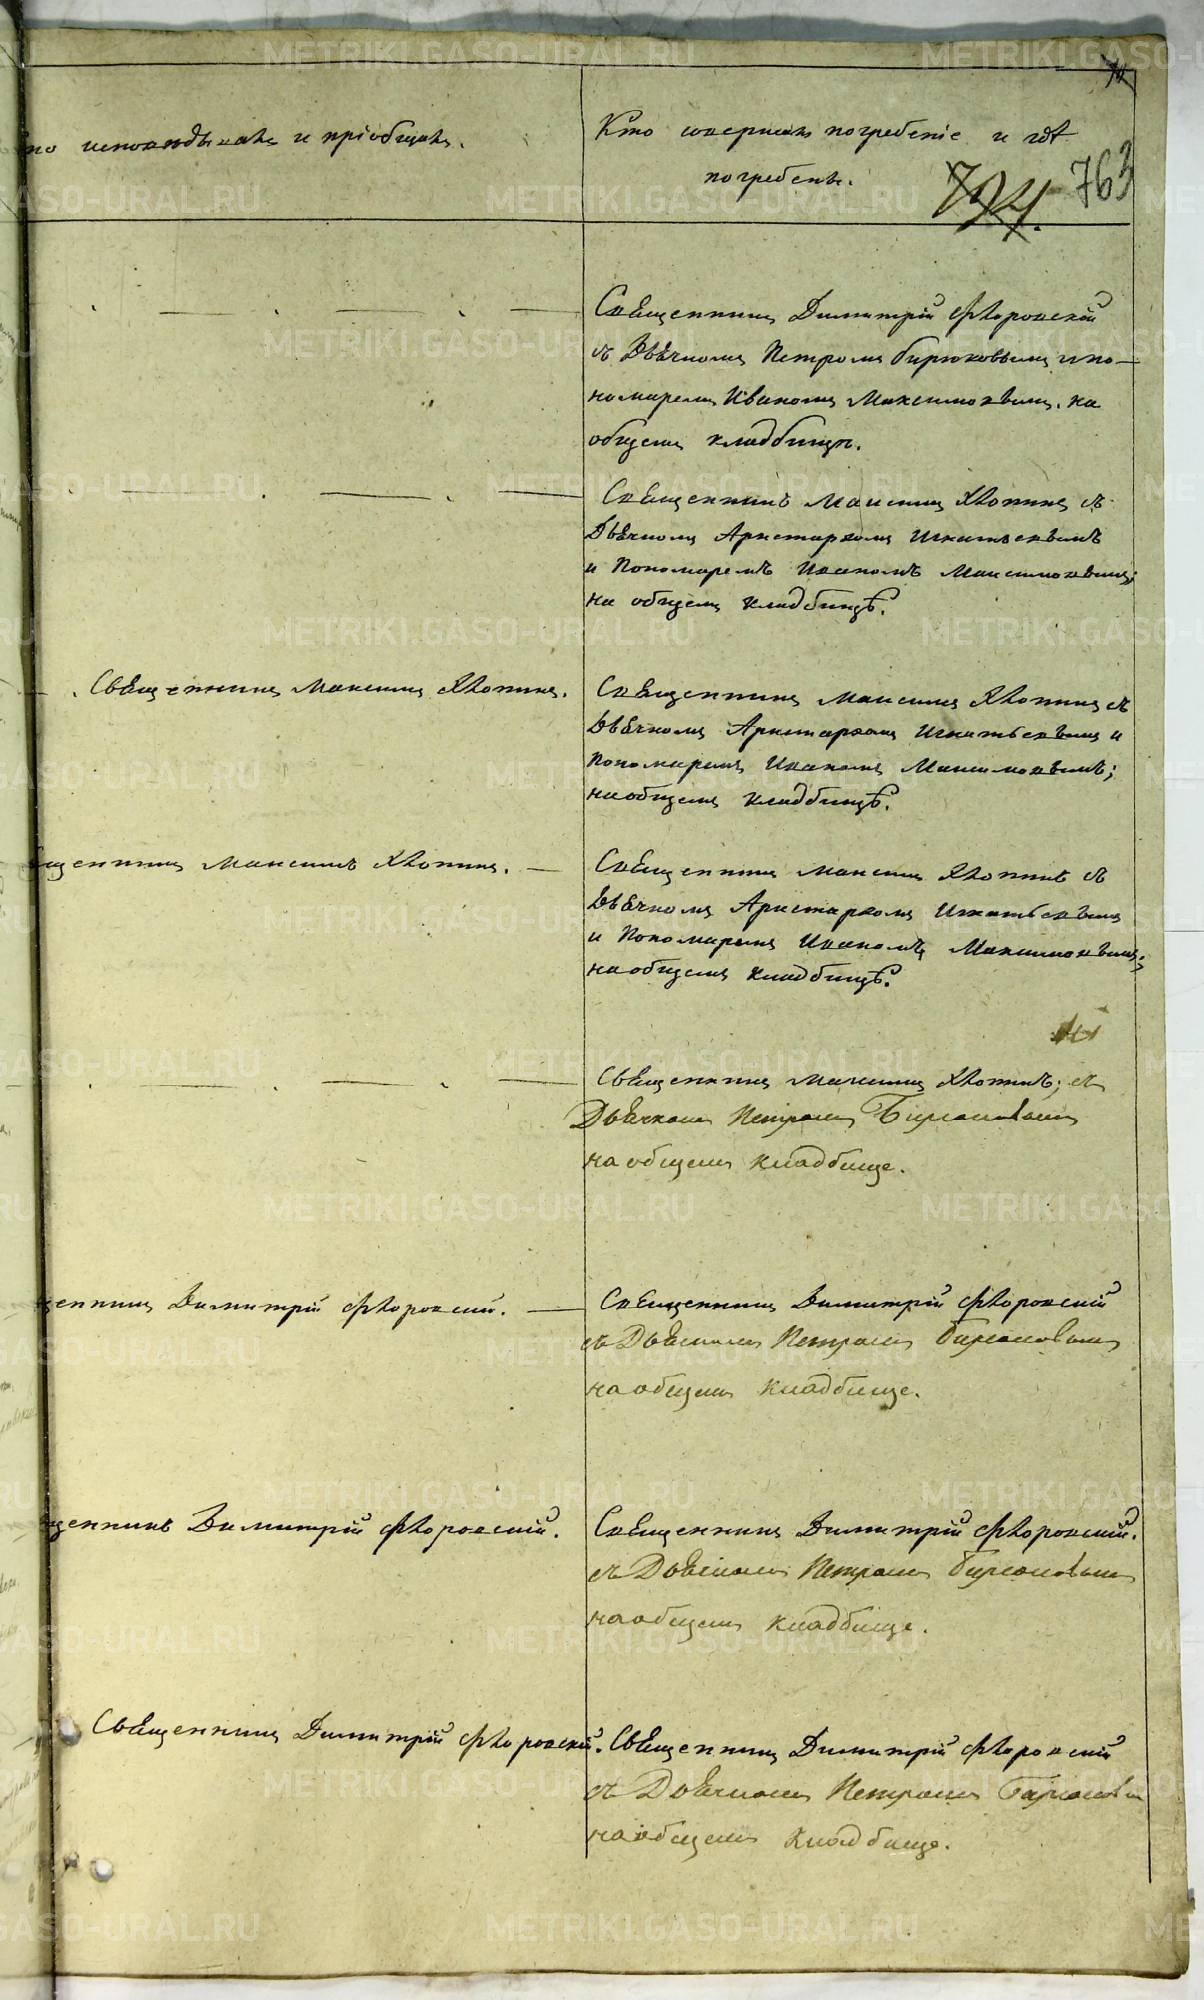 исповѣдывалъ и пріобщалъ.
Кто совершалъ погребеніе и гдѣ
погребенъ.
794.
763
Священникъ Димитрій Флоровскій
съ Дьячкомъ Петромъ Бирюковымъ и по-
номаремъ Иваномъ Максимовымъ. на
общемъ кладбищѣ.
Священникъ Максимъ Хлопинъ съ
Дьячкомъ Аристархомъ Игнатьевымъ
и Пономаремъ Иваномъ Максимовымъ;
на общемъ кладбищѣ.
Священникъ Максимъ Хлопинъ.
Священникъ Максимъ Хлопинъ съ
Дьячкомъ Аристархомъ Игнатьевымъ и
Пономаремъ Иваномъ Максимовымъ;
на общемъ кладбищѣ.
щенникъ Максимъ Хлопинъ.
Священникъ Максимъ Хлопинъ съ
Дьячкомъ Аристархомъ Игнатьевымъ
и Пономаремъ Иваномъ Максимовымъ;
на общемъ кладбищѣ.
Священникъ Максимъ Хлопинъ; съ
Дьячкомъ Петромъ Бирюковымъ
на общемъ кладбище.
щенникъ Димитрій Флоровскій.
Священникъ Димитрій Флоровскій
съ Дьячкомъ Петромъ Бирюковымъ
на общемъ кладбище.
щенникъ Димитрій Флоровскій.
Священникъ Димитрій Флоровскій.
съ Дьячкомъ Петромъ Бирюковымъ
на общемъ кладбище.
Священникъ Димитрій Флоровскій.
Священникъ Димитрій Флоровскій
съ Дьячкомъ Петромъ Бирюковы
на общемъ кладбище.
METRIKI.GASO-URAL.RU